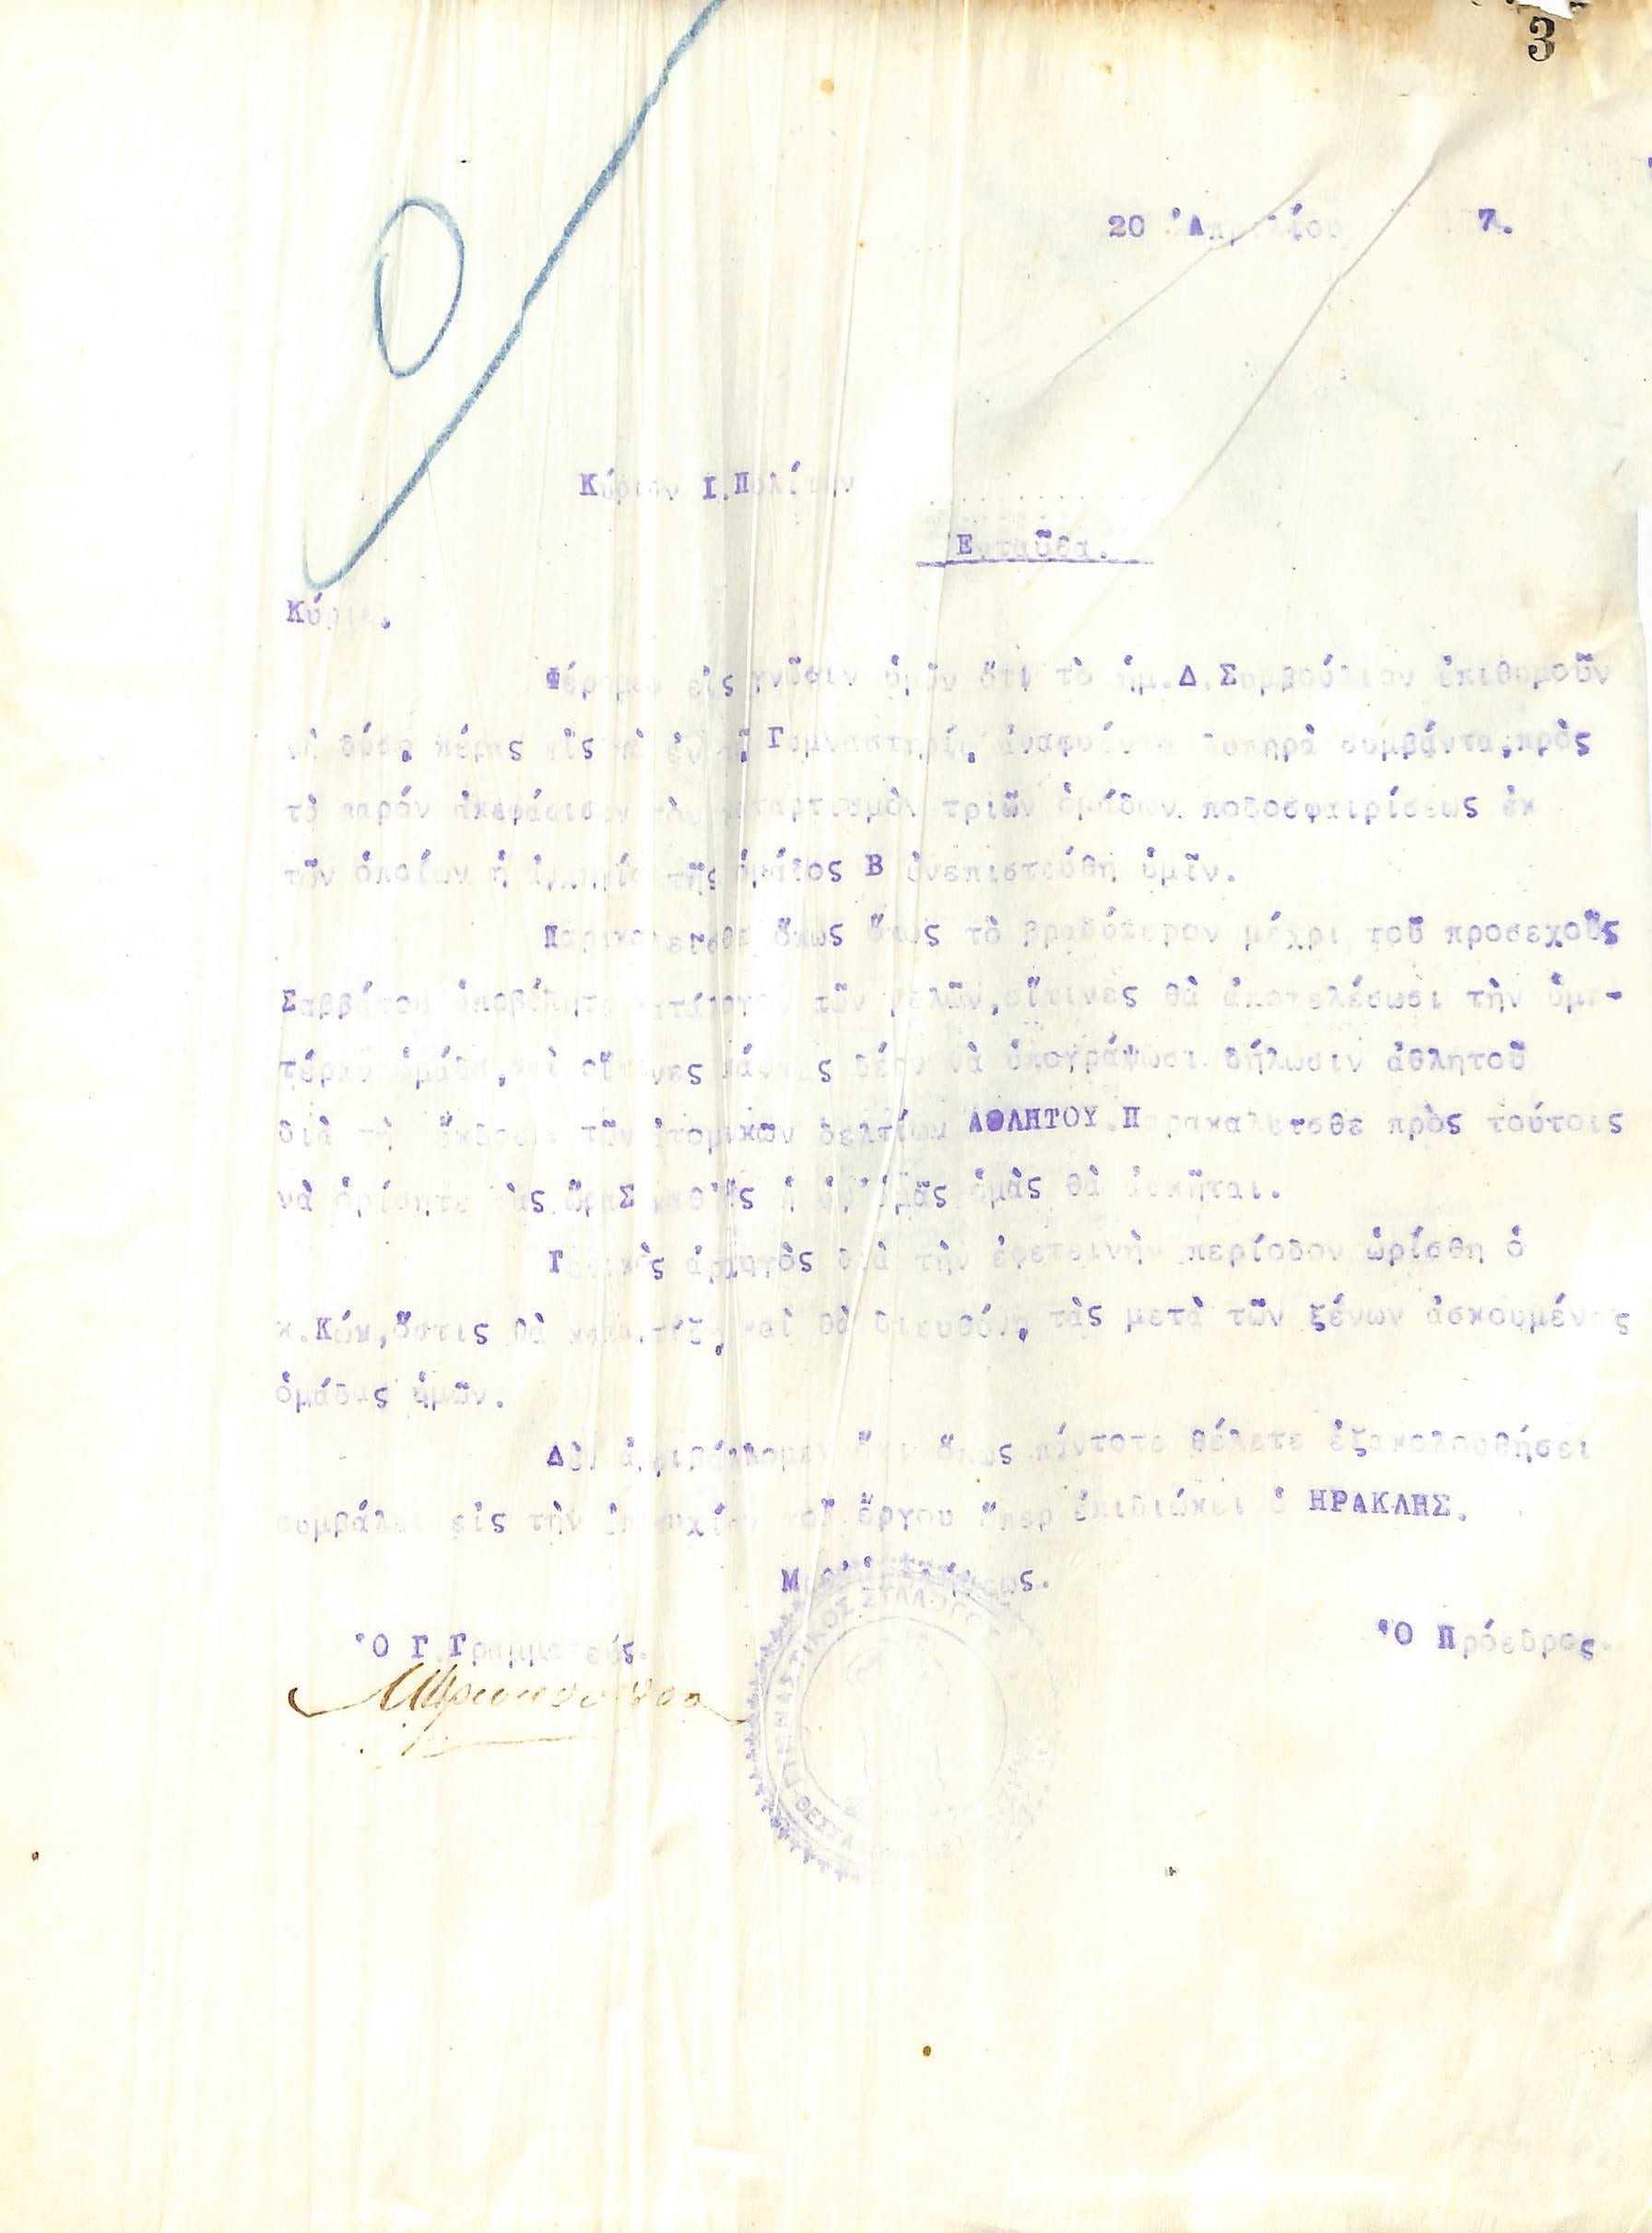 3
20 Ἀπριλίου 7.
Κύριον Ι.Πολίτην
Ἐνταῦθα.
Κύριε.
Φέρομεν εἰς γνῶσιν ὑμῶν ὅτι τὸ ἡμ.Δ.Συμβούλιον ἐπιθυμοῦν
νὰ δώσῃ πέρας εἰς τὰ ἐν τῷ Γυμναστηρίῳ ἀναφυέντα λυπηρὰ συμβάντα,πρὸς
τὸ παρόν ἀπεφάσισεν τὸν καταρτισμὸν τριῶν ὁμάδων ποδοσφαιρίσεως ἐκ
τῶν ὁποίων ἡ ἀρχηγία τῆς ὁμάδος Β ἐνεπιστεύθη ὑμῖν.
Παρακαλεῖσθε ὅπως ὅπως τὸ βραδύτερον μέχρι τοῦ προσεχοῦς
Σαββάτου ὑποβάλητε κατάλογον τῶν μελῶν,οἵτινες θὰ ἀποτελέσωσι τὴν ὑμε-
τέραν ὁμάδα,καὶ οἵτινες πάντες δέον νὰ ὑπογράψωσι δήλωσιν ἀθλητοῦ
διὰ τὴν ἔκδοσιν τῶν ἀτομικῶν δελτίων ΑΘΛΗΤΟΥ.Παρακαλεῖσθε πρὸς τούτοις
νὰ ὁρίσητε τὰς ὥραΣ καθ'ἃς ἡ ὑφ'ὑμᾶς ὁμὰς θὰ ἀσκῆται.
Γενικὸς ἀρχηγὸς διὰ τὴν ἐφετεινὴν περίοδον ὡρίσθη ὁ
κ.Κώκ,ὅστις θὰ καταρτίζῃ καὶ θὰ διευθύνῃ τὰς μετὰ τῶν ξένων ἀσκουμένας
ὁμάδας ἡμῶν.
Δὲν ἀμφιβάλλομεν ὅτι ὅπως πάντοτε θέλετε ἐξακολουθήσει
συμβάλει εἰς τὴν ἐπιτυχίαν τοῦ ἔργου ὅπερ ἐπιδιώκει ὁ ΗΡΑΚΛΗΣ.
Μεθ'ὑπολήψεως.
Ὁ Γ.Γραμματεύς.
Ὁ Πρόεδρος.
ΓΥΜΝΑΣΤΙΚΟΣ ΣΥΛΛΟΓΟΣ